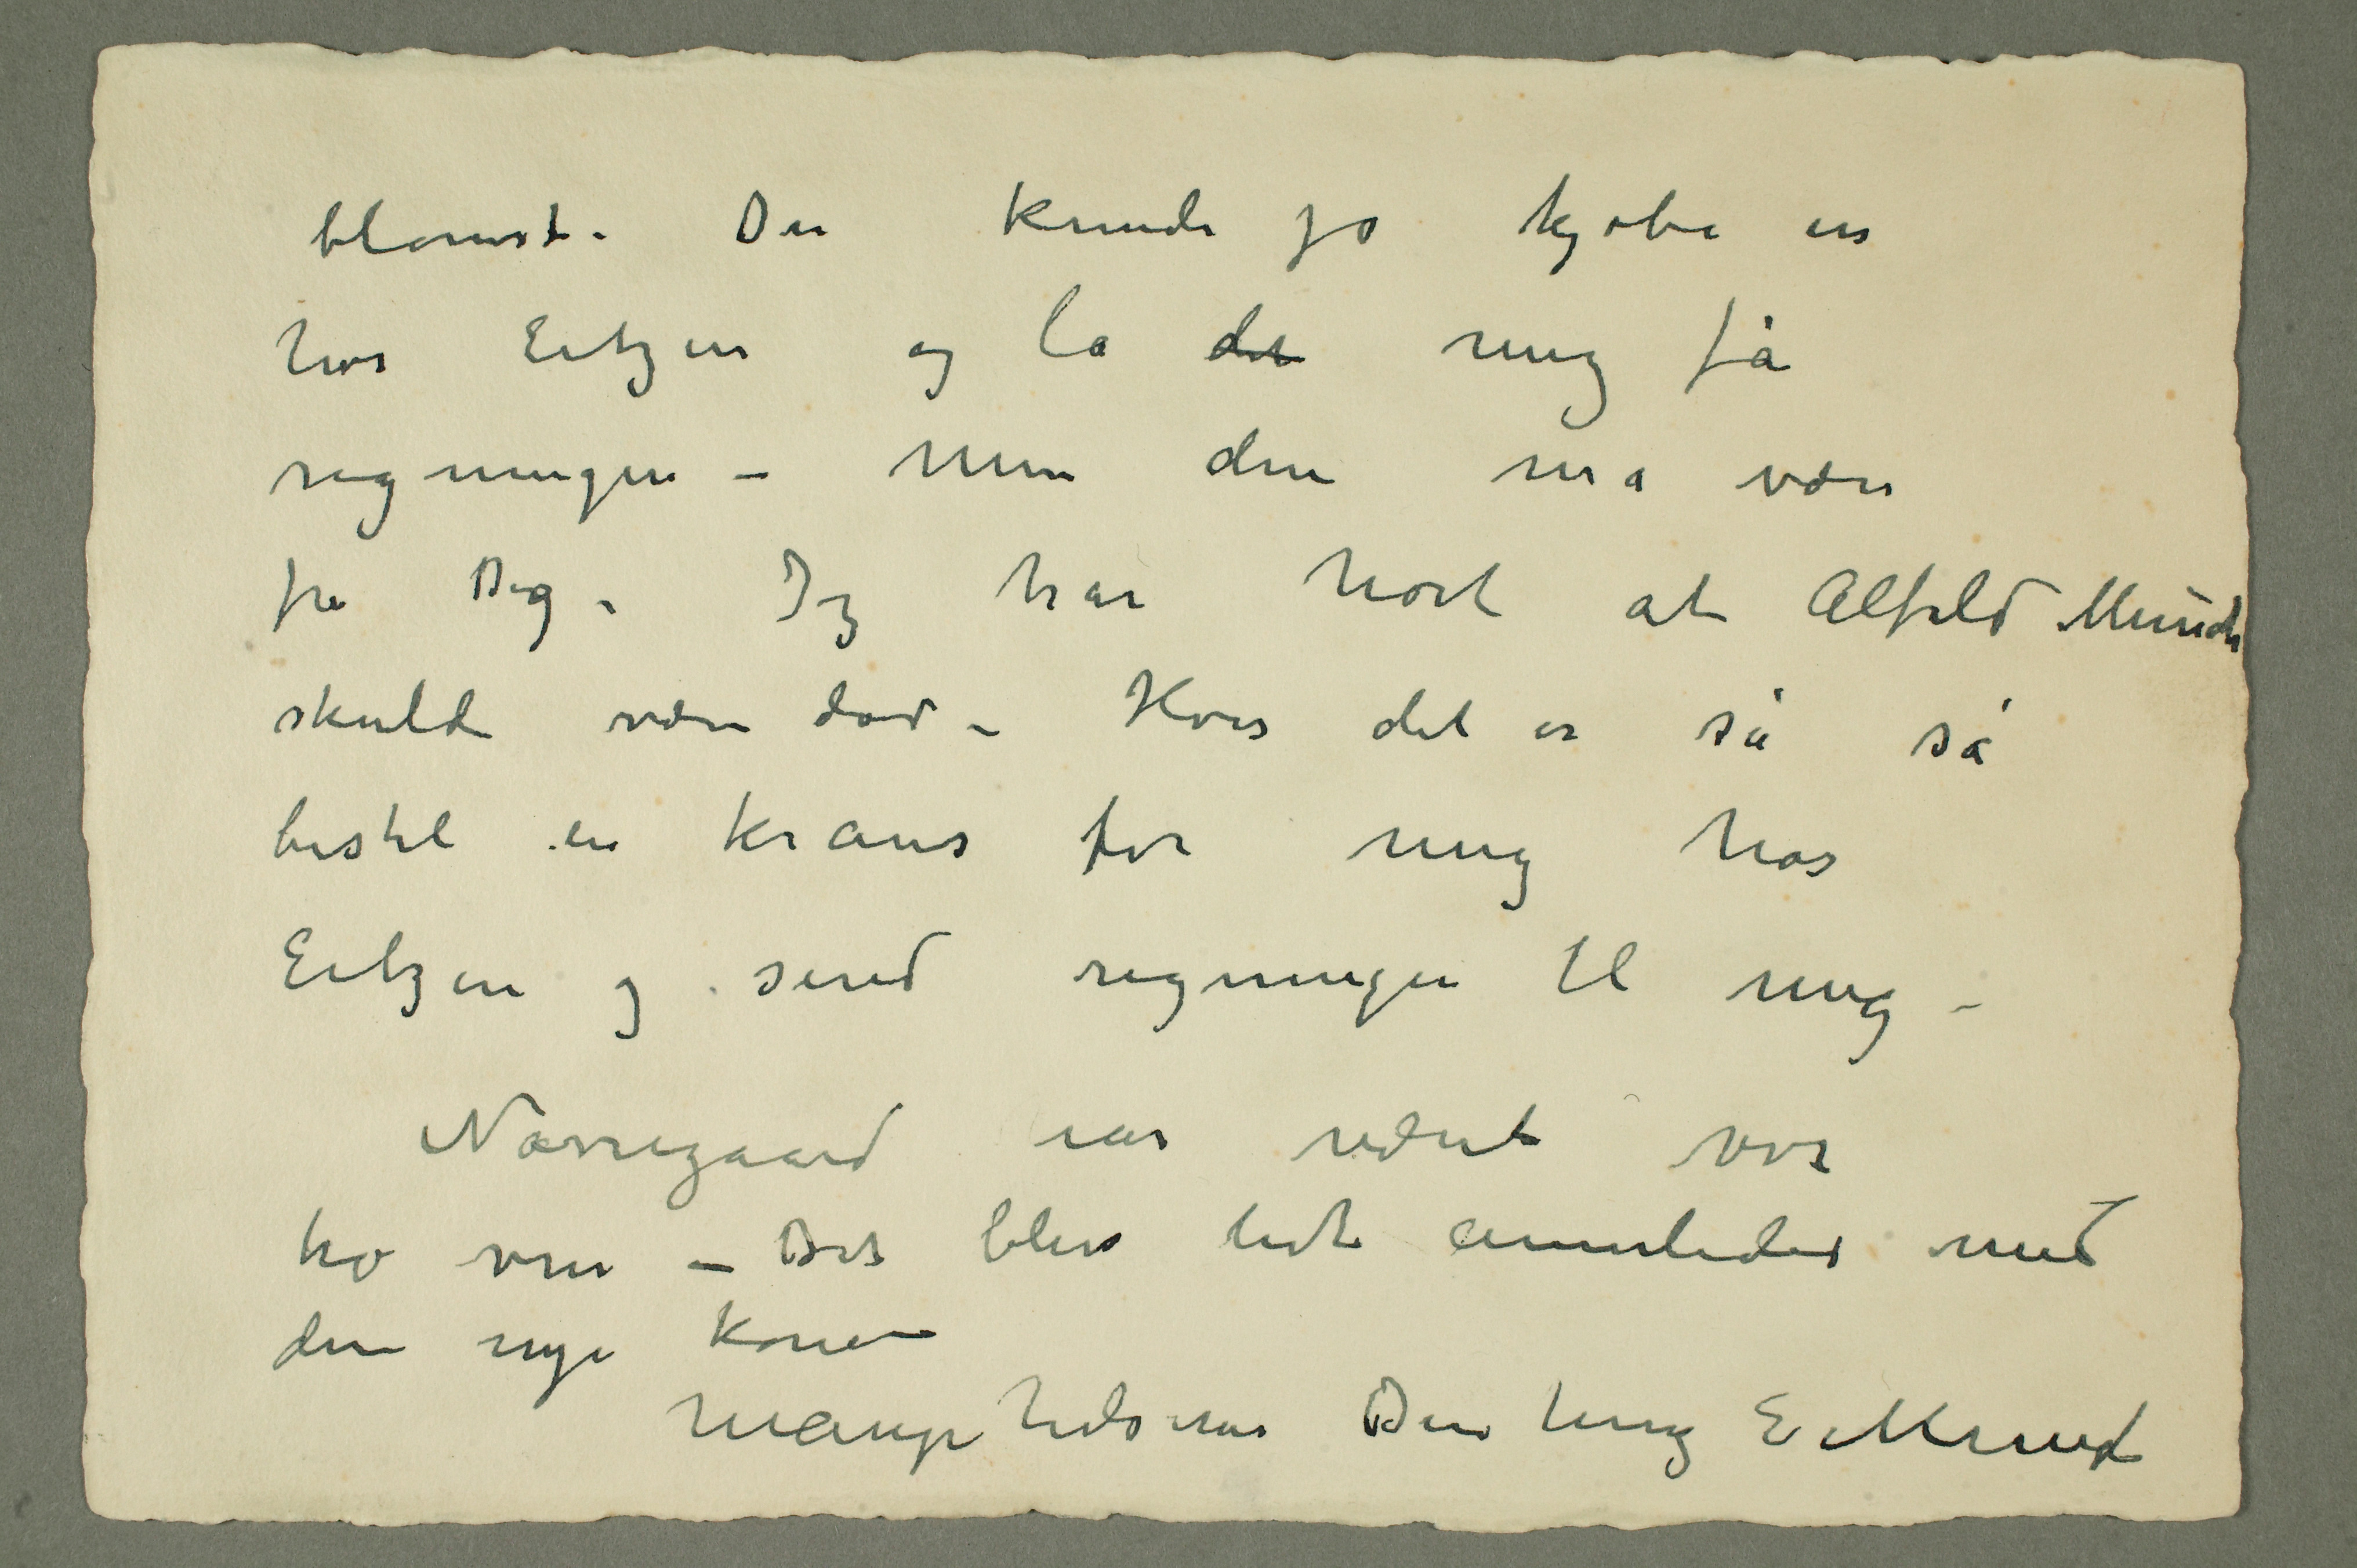 blomst. Du kunde jo kjøbe en
hos Eitzen og la det mig få
regningen – Men den må være
fra Dig. Jeg har hørt at Alfild Munch
skulde være død – Hvis det er så så
bestil en krans for mig hos
Eitzen og send regningen til mig –
Nørregaard har været vor
tro ven – Det blev lidt annerledes med
den nye kone
Mange hilsener Din heng E. Munch